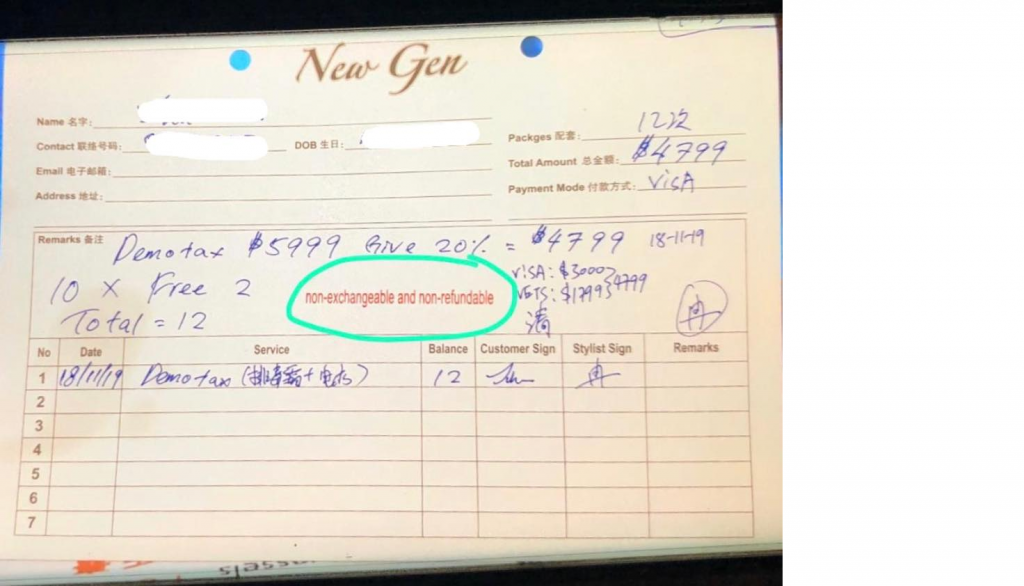 New Gen
Name 名字:
Contact 联络号码:
DOB 生日:
Email 电子邮箱:
Address 地址:
Packges 配套: 12次
Total Amount 总金额: $4799
Payment Mode 付款方式: VISA
Remarks 备注
Demotax $5999 Give 20% = $4799 18-11-19
10 X Free 2
Total = 12
non-exchangeable and non-refundable
VISA: $3000
NETS: $1799
4799
清
No Date Service Balance Customer Sign Stylist Sign Remarks
1 18/11/19 Demotax 12
2
3
4
5
6
7